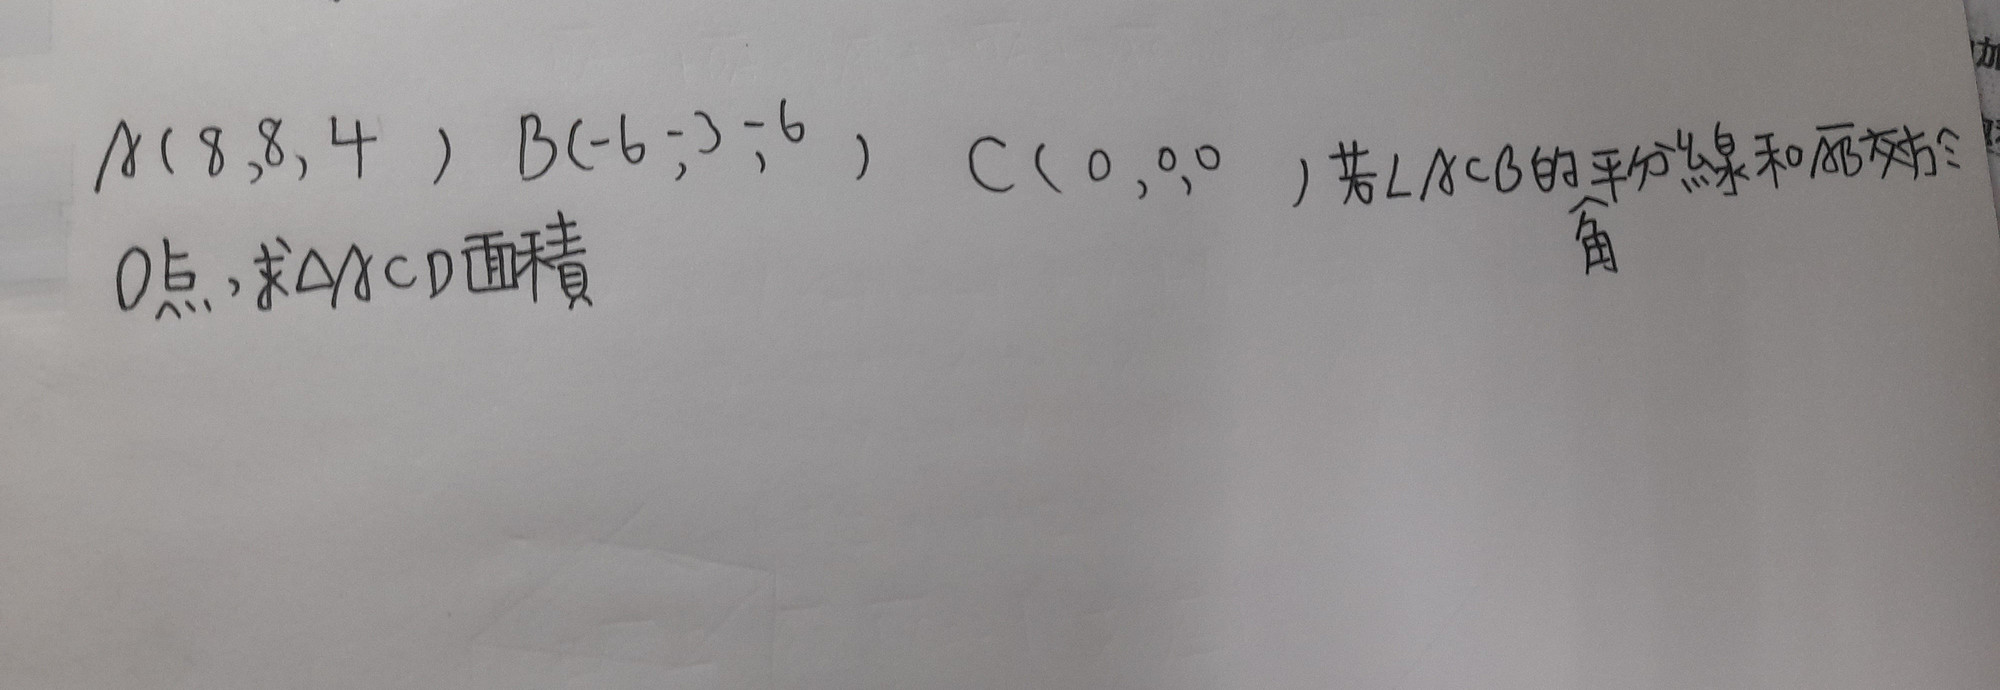 A(8,8,4) B(-6,-3,-6) C(0,0,0)若∠ACB的角平分線和AB交於
D点,求△ACD面積
加